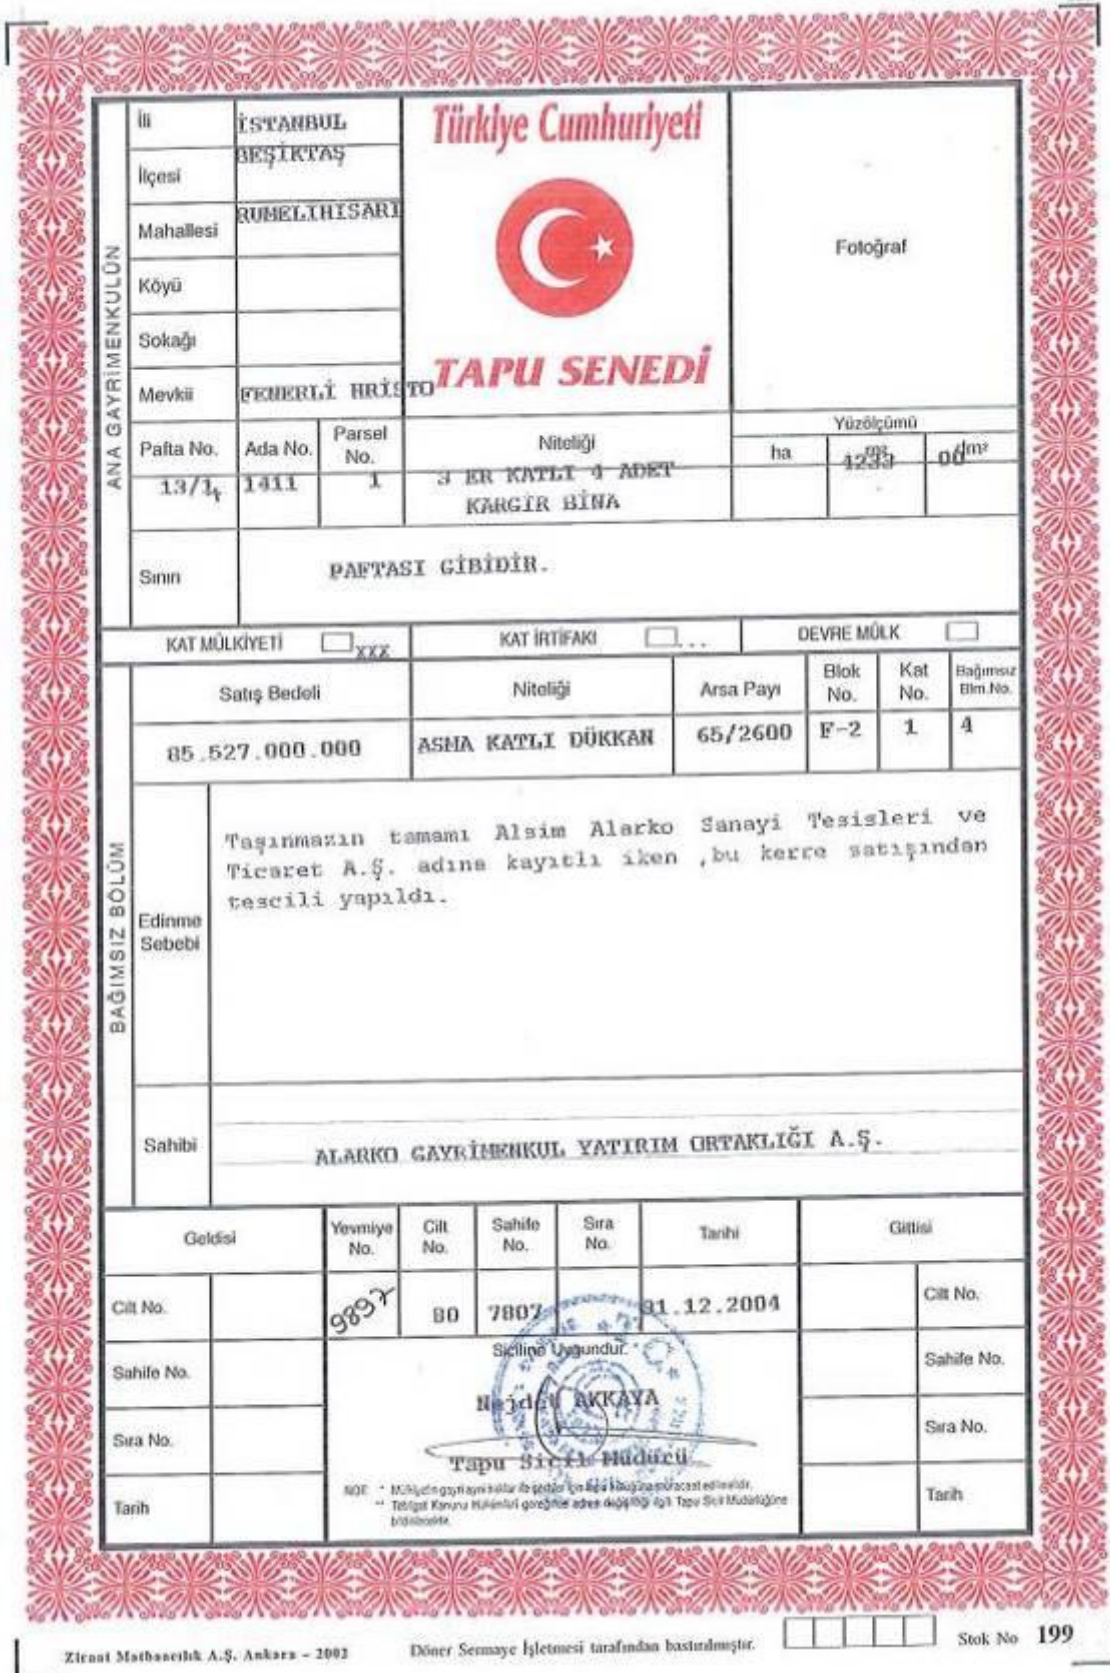 İli
İSTANBUL
İlçesi
BEŞİKTAŞ
Mahallesi
RUMELİHİSARI
Köyü
Sokağı
Mevkii
FENERLİ HRİSTO
ANA GAYRİMENKULÜN
Türkiye Cumhuriyeti
TAPU SENEDİ
Fotoğraf
Pafta No.
Ada No.
Parsel No.
Niteliği
Yüzölçümü
ha
m²
dm²
13/1
1411
1
3 ER KATLI 4 ADET
KARGİR BİNA
1233
00
Sınırı
PAFTASI GİBİDİR.
KAT MÜLKİYETİ
xxx
KAT İRTİFAKI
...
DEVRE MÜLK
BAĞIMSIZ BÖLÜM
Satış Bedeli
Niteliği
Arsa Payı
Blok No.
Kat No.
Bağımsız Blm.No.
85.527.000.000
ASMA KATLI DÜKKAN
65/2600
F-2
1
4
Edinme Sebebi
Taşınmazın tamamı Alsim Alarko Sanayi Tesisleri ve
Ticaret A.Ş. adına kayıtlı iken ,bu kerre satışından
tescili yapıldı.
Sahibi
ALARKO GAYRİMENKUL YATIRIM ORTAKLIĞI A.Ş.
Geldisi
Yevmiye No.
Cilt No.
Sahife No.
Sıra No.
Tarihi
Gittisi
Cilt No.
9892
80
7807
31.12.2004
Cilt No.
Siciline Uygundur.
Sahife No.
Sahife No.
Nejdet AKKAYA
Sıra No.
Sıra No.
Tapu Sicil Müdürü
Tarih
Tarih
NOT: * Mülkiyetin gayri ayni haklar ile şerhler için tapu kütüğüne müracaat edilmelidir.
** Tebligat Kanunu Hükümleri gereğince adres değişikliği ilgili Tapu Sicil Müdürlüğüne
bildirilecektir.
Ziraat Matbaacılık A.Ş. Ankara – 2002
Döner Sermaye İşletmesi tarafından bastırılmıştır.
Stok No 199